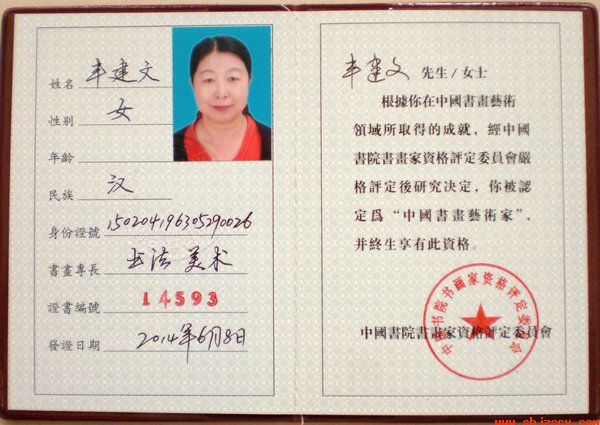 姓名 丰建文
性别 女
年龄
民族 汉
身份證號 150204196305290026
書畫專長 书法 美术
證書編號 14593
發證日期 2014年6月8日
丰建文 先生/女士
根據你在中國書畫藝術
領域所取得的成就，經中國
書院書畫家資格評定委員會嚴
格評定後研究決定，你被認
定爲“中國書畫藝術家”，
并終生享有此資格。
中國書院書畫家資格評定委員會
中國书院书画家资格评定委员会